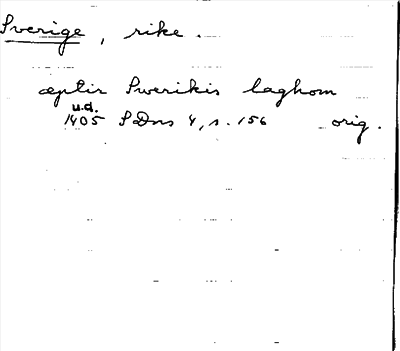 Sverige, rike.
æptir Swerikis laghom
u.d.
1405 SDns 4, s. 156 orig.